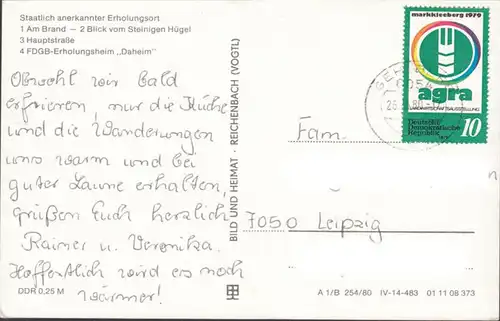 Staatlich anerkannter Erholungsort
1 Am Brand — 2 Blick vom Steinigen Hügel
3 Hauptstraße
4 FDGB-Erholungsheim „Daheim"
Obwohl wir bald
erfrieren, nur die Küche
und die Wanderungen
uns warm und bei
guter Laune erhalten,
grüßen Euch herzlich
Rainer u. Veronika.
Hoffentlich wird es noch
wärmer!
DDR 0,25 M
BILD UND HEIMAT · REICHENBACH (VOGTL)
markkleeberg 1979
agra
LANDWIRTSCHAFTSAUSSTELLUNG
Deutsche
Demokratische
Republik
10
Fam.
7050 Leipzig
A 1/B 254/80 IV-14-483 01 11 08 373